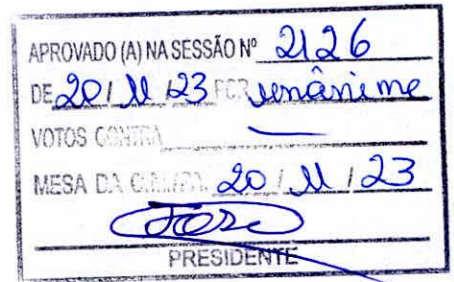 APROVADO (A) NA SESSÃO Nº 2126
DE 20 / 11 / 23 POR unânime
VOTOS CONTRA —
MESA DA C.M./PA. 20 / 11 / 23
PRESIDENTE